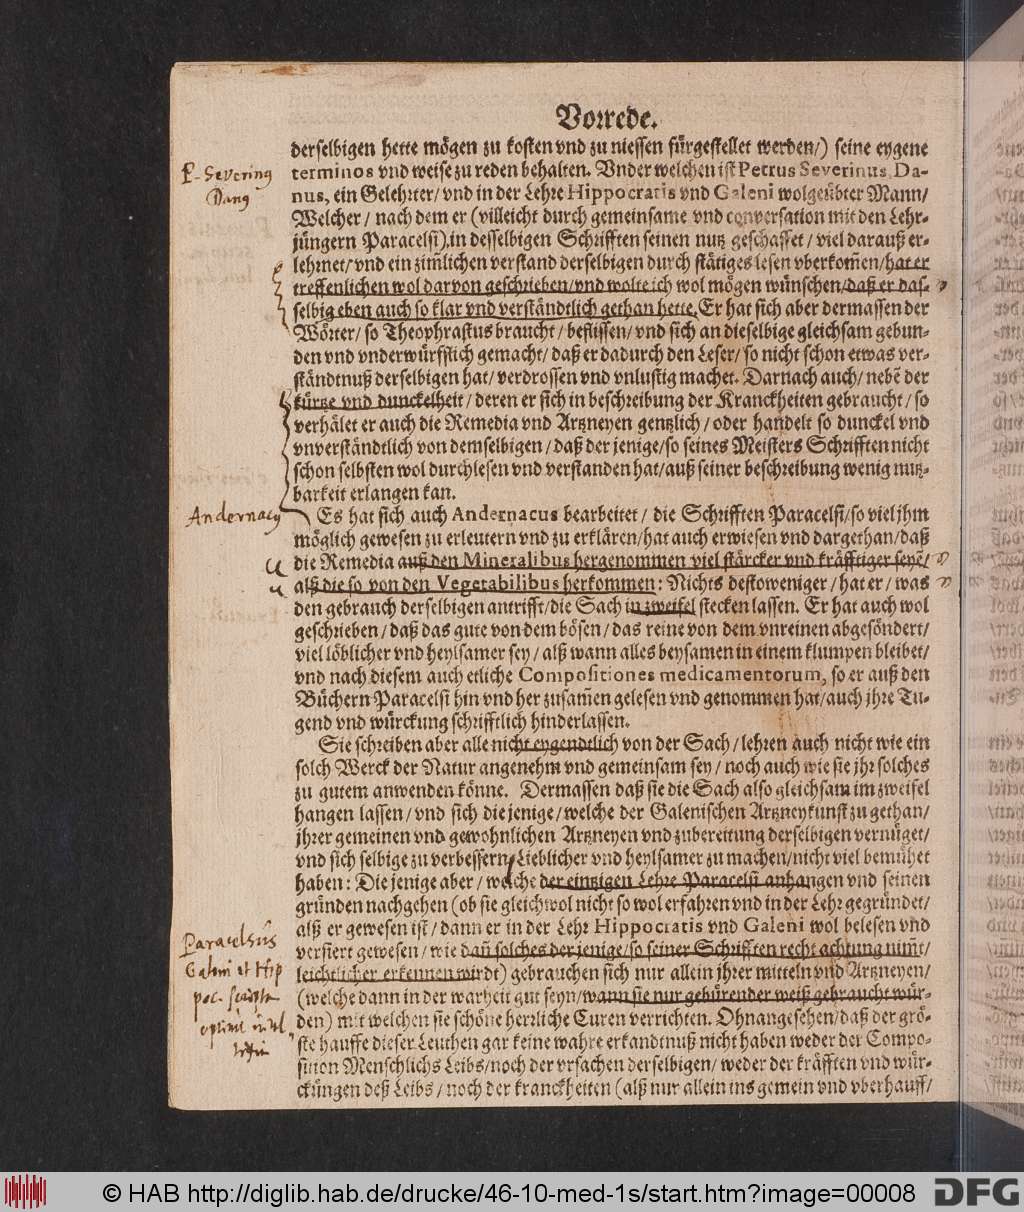 Vorrede.
derselbigen hette mögen zu kosten vnd zu niessen fürgestellet werden/) seine eygene
P. Severinꝰ
terminos vnd weise zu reden behalten. Vnder welchen ist Petrus Severinus Da-
Danꝰ
nus, ein Gelehrter/ vnd in der Lehre Hippocratis vnd Galeni wolgeübter Mann/
Welcher/ nach dem er (villeicht durch gemeinsame vnd conversation mit den Lehr-
jüngern Paracelsi) in desselbigen Schrifften seinen nutz geschaffet/ viel darauß er-
lehrnet/ vnd ein zim̃lichen verstand derselbigen durch stätiges lesen vberkom̃en/ hat er
treffenlichen wol darvon geschrieben/ vnd wolte ich wol mögen wünschen/ daß er das-
selbig eben auch so klar vnd verständtlich gethan hette. Er hat sich aber dermassen der
Wörter/ so Theophrastus braucht/ beflissen/ vnd sich an dieselbige gleichsam gebun-
den vnd vnderwürfflich gemacht/ daß er dadurch den Leser/ so nicht schon etwas ver-
ständtnuß derselbigen hat/ verdrossen vnd vnlustig machet. Darnach auch/ nebẽ der
kürtze vnd dunckelheit/ deren er sich in beschreibung der Kranckheiten gebraucht/ so
verhälet er auch die Remedia vnd Artzneyen gentzlich/ oder handelt so dunckel vnd
vnverständtlich von demselbigen/ daß der jenige/ so seines Meisters Schrifften nicht
schon selbsten wol durchlesen vnd verstanden hat/ auß seiner beschreibung wenig nutz-
barkeit erlangen kan.
Andernacꝰ
Es hat sich auch Andernacus bearbeitet/ die Schrifften Paracelsi/ so viel jhm
möglich gewesen zu erleutern vnd zu erklären/ hat auch erwiesen vnd dargethan/ daß
die Remedia auß den Mineralibus hergenommen viel stärcker vnd kräfftiger seyẽ/
alß die so von den Vegetabilibus herkommen: Nichts destoweniger/ hat er/ was
den gebrauch derselbigen antrifft/ die Sach in zweifel stecken lassen. Er hat auch wol
geschrieben/ daß das gute von dem bösen/ das reine von dem vnreinen abgesöndert/
viel löblicher vnd heylsamer sey/ alß wann alles beysamen in einem klumpen bleibet/
vnd nach diesem auch etliche Compositiones medicamentorum, so er auß den
Büchern Paracelsi hin vnd her zusam̃en gelesen vnd genommen hat/ auch jhre Tu-
gend vnd würckung schrifftlich hinderlassen.
Sie schreiben aber alle nicht eygendtlich von der Sach/ lehren auch nicht wie ein
solch Werck der Natur angenehm vnd gemeinsam sey/ noch auch wie sie jhr solches
zu gutem anwenden könne. Dermassen daß sie die Sach also gleichsam im zweifel
hangen lassen/ vnd sich die jenige/ welche der Galenischen Artzneykunst zu gethan/
jhrer gemeinen vnd gewohnlichen Artzneyen vnd zubereitung derselbigen vernüget/
vnd sich selbige zu verbessern/ Lieblicher vnd heylsamer zu machen/ nicht viel bemühet
haben: Die jenige aber/ welche der eintzigen Lehre Paracelsi anhangen vnd seinen
gründen nachgehen (ob sie gleichwol nicht so wol erfahren vnd in der Lehr gegründet/
alß er gewesen ist/ dann er in der Lehr Hippocratis vnd Galeni wol belesen vnd
Paracelsus
versiert gewesen/ wie dañ solches der jenige/ so seiner Schrifften recht achtung nim̃t/
Galeni et Hip
leichtlicher erkennen wirdt) gebrauchen sich nur allein jhrer mitteln vnd Artzneyen/
poc. scripta
(welche dann in der warheit gut seyn/ wann sie nur gebürender weiß gebraucht wür-
den) mit welchen sie schöne herrliche Curen verrichten. Ohnangesehen/ daß der grö-
ste hauffe dieser Leuthen gar keine wahre erkandtnuß nicht haben weder der Compo-
sition Menschlichs Leibs/ noch der vrsachen derselbigen/ weder der kräfften vnd wür-
ckungen deß Leibs/ noch der kranckheiten (alß nur allein ins gemein vnd vberhauff/
© HAB http://diglib.hab.de/drucke/46-10-med-1s/start.htm?image=00008
DFG